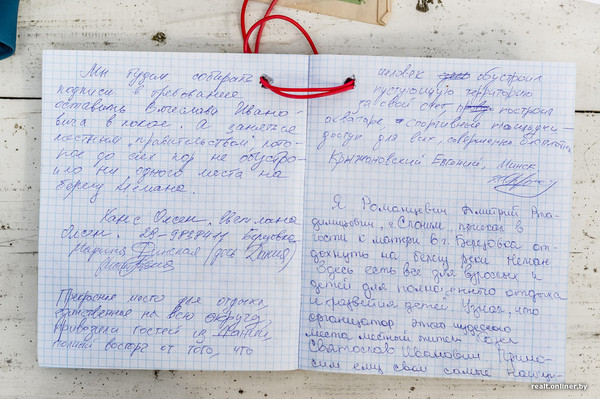 Мы будем собирать
подписи с требованием
оставить Вячеслава Ивано-
вича в покое. А заняться
местным правительством, кото-
рое до сих пор не обустро-
ило ни одного места на
берегу Нёмана.
Ханс Олсен. Светлана
Олсен. 29-
Прекрасное место для отдыха,
единственное на всю округу.
Привозили гостей из
полный восторг от того, что
человек обустроил
пустующую территорию
за свой счет построил
спортивные площадки-
доступ для всех, совершенно бесплатно
Крыжановский Евгений, Минск
Я Романцевич Дмитрий Вла-
димирович, г. Слоним приехал в
гости к матери в г. Берёзовка от-
дохнуть на берегу реки Неман
Здесь есть все для взрослых и
детей для полноценного отдыха
и развития детей. Узнал, что
организатор этого чудесного
места местный житель
Святослав Иванович. Прино-
сим ему свои самые
realt.onliner.by